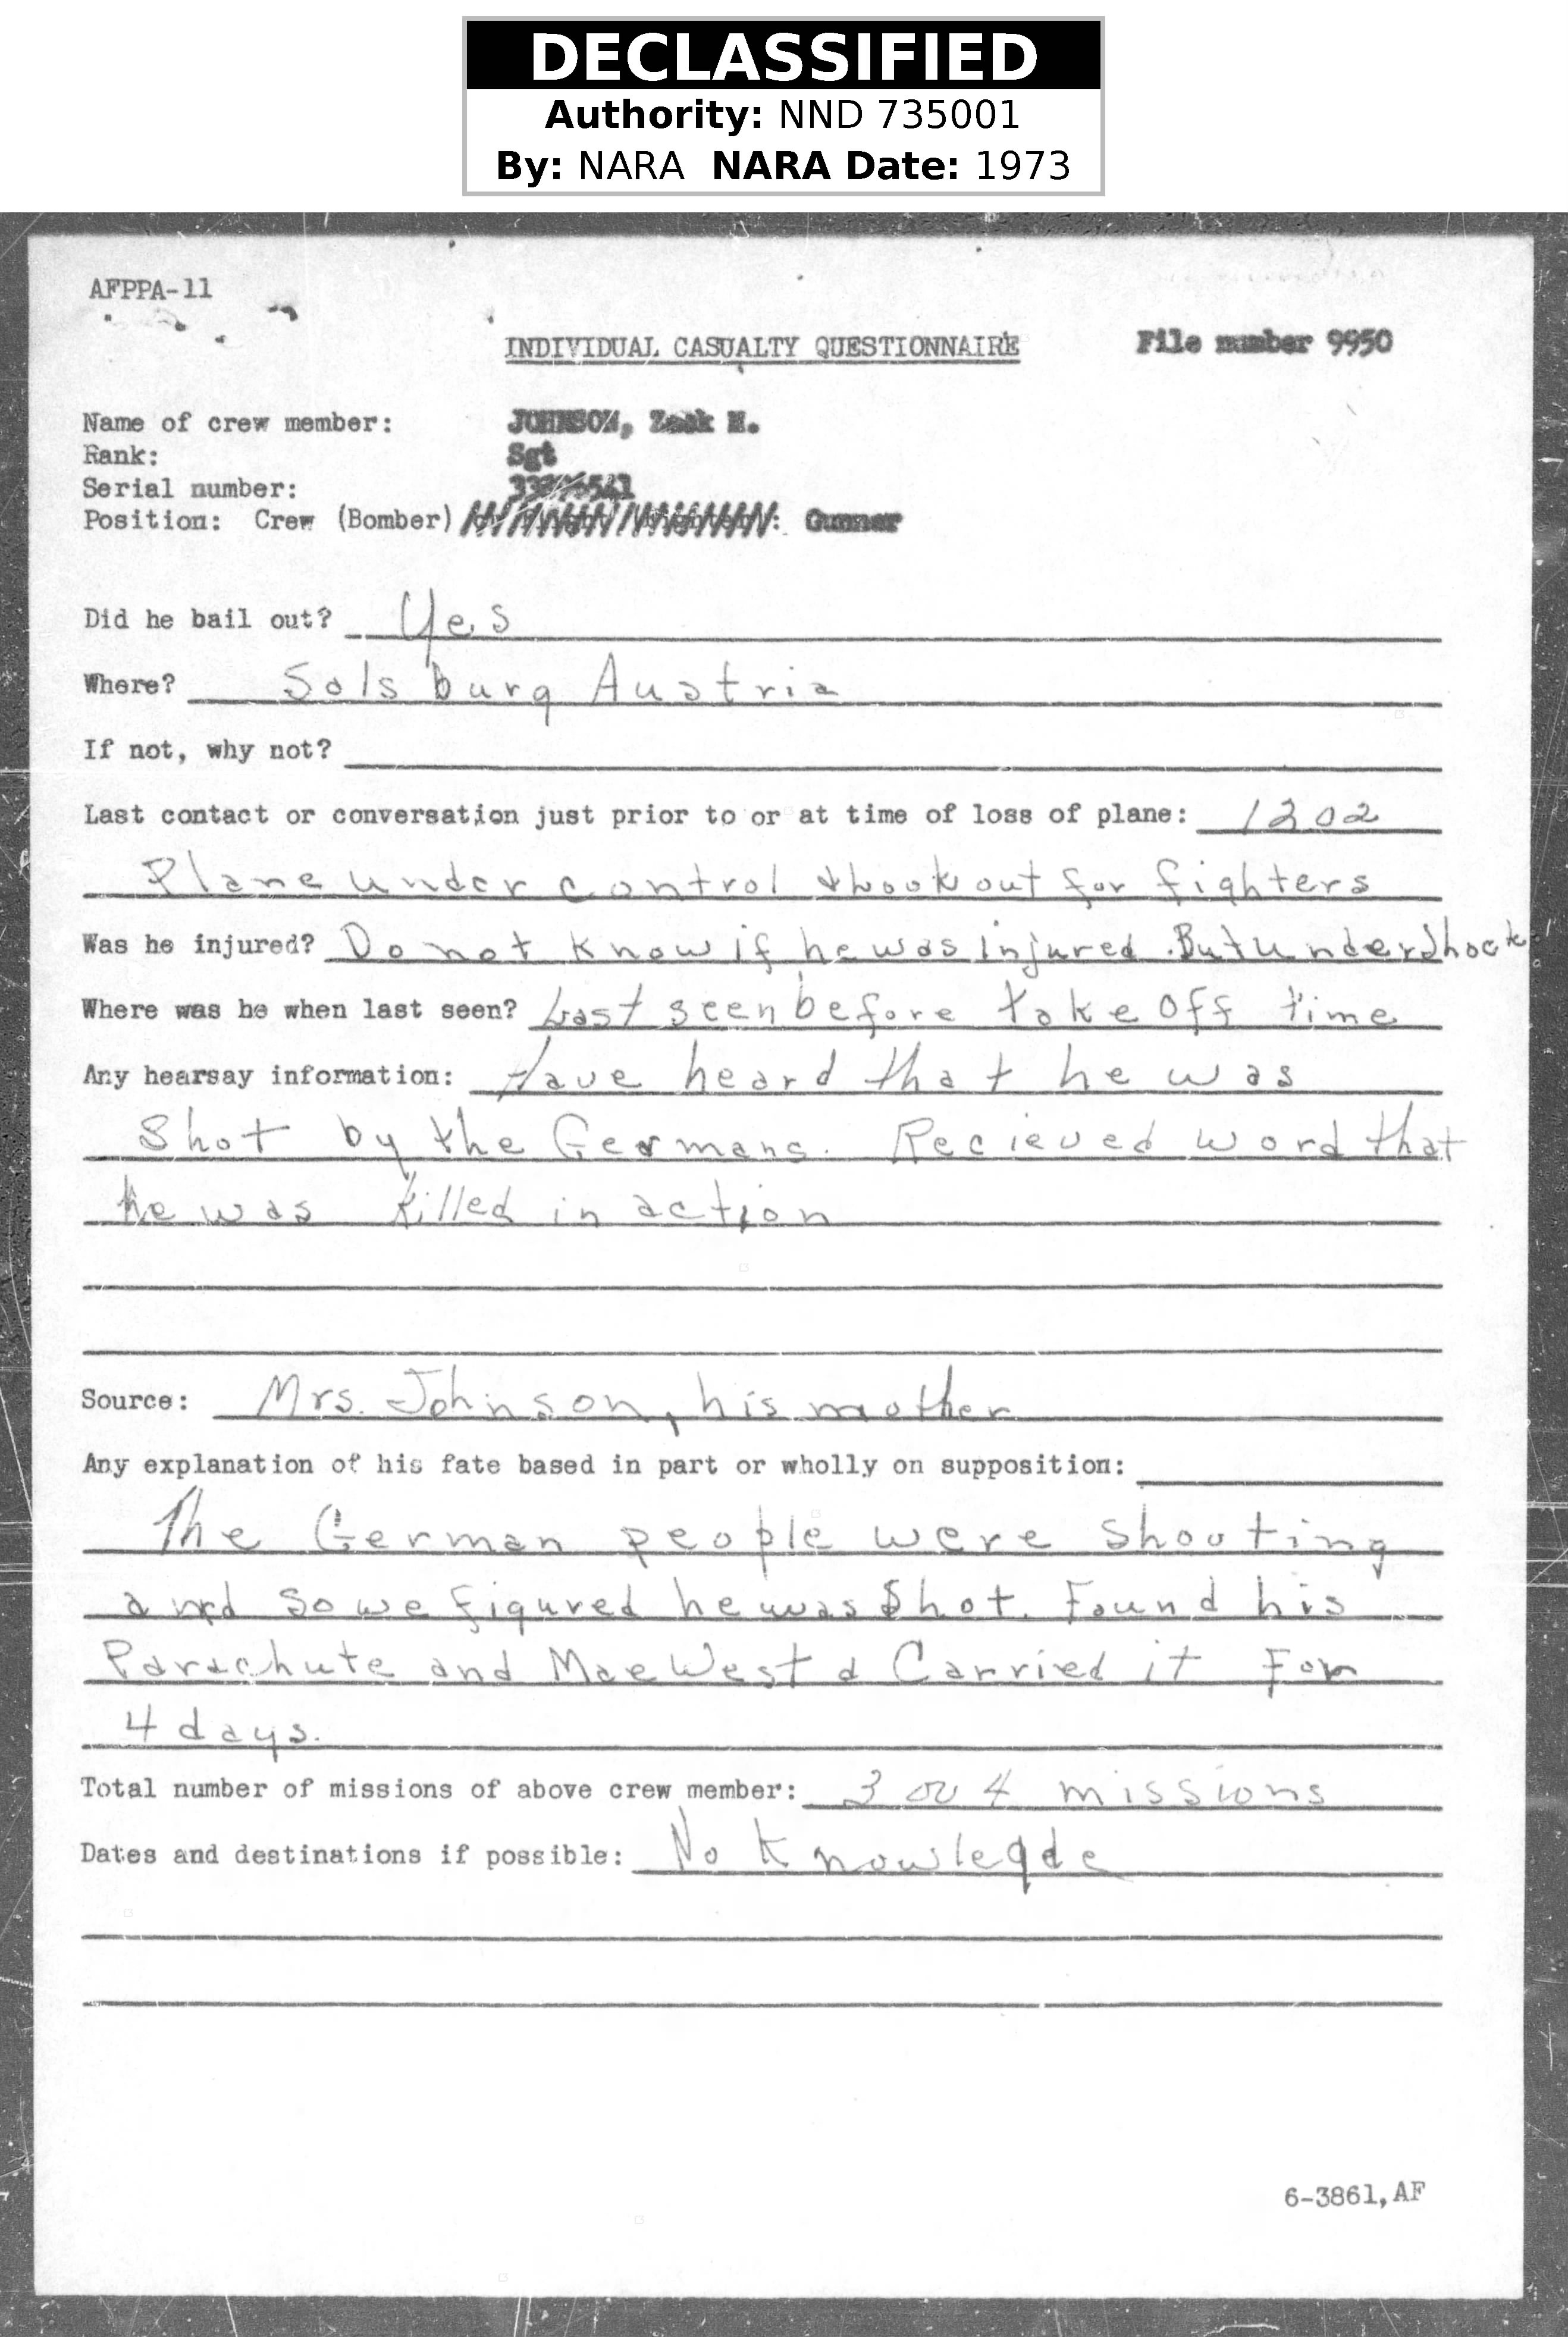 DECLASSIFIED
Authority: NND 735001
By: NARA NARA Date: 1973
AFPPA-11
INDIVIDUAL CASUALTY QUESTIONNAIRE
File number 9950
Name of crew member: JOHNSON, Zack
Rank: Sgt
Serial number:
Position: Crew (Bomber) : Gunner
Did he bail out? Yes
Where? Solsburg Austria
If not, why not?
Last contact or conversation just prior to or at time of loss of plane: 1202
Plane under control & look out for fighters
Was he injured? Do not know if he was injured. But under shock
Where was he when last seen? Last seen before take off time
Any hearsay information: Have heard that he was
Shot by the Germans. Recieved word that
he was killed in action
Source: Mrs. Johnson, his mother
Any explanation of his fate based in part or wholly on supposition:
The German people were shooting
and so we figured he was shot. Found his
Parachute and Mae West & Carried it For
4 days.
Total number of missions of above crew member: 3 or 4 missions
Dates and destinations if possible: No Knowlegde
6-3861,AF